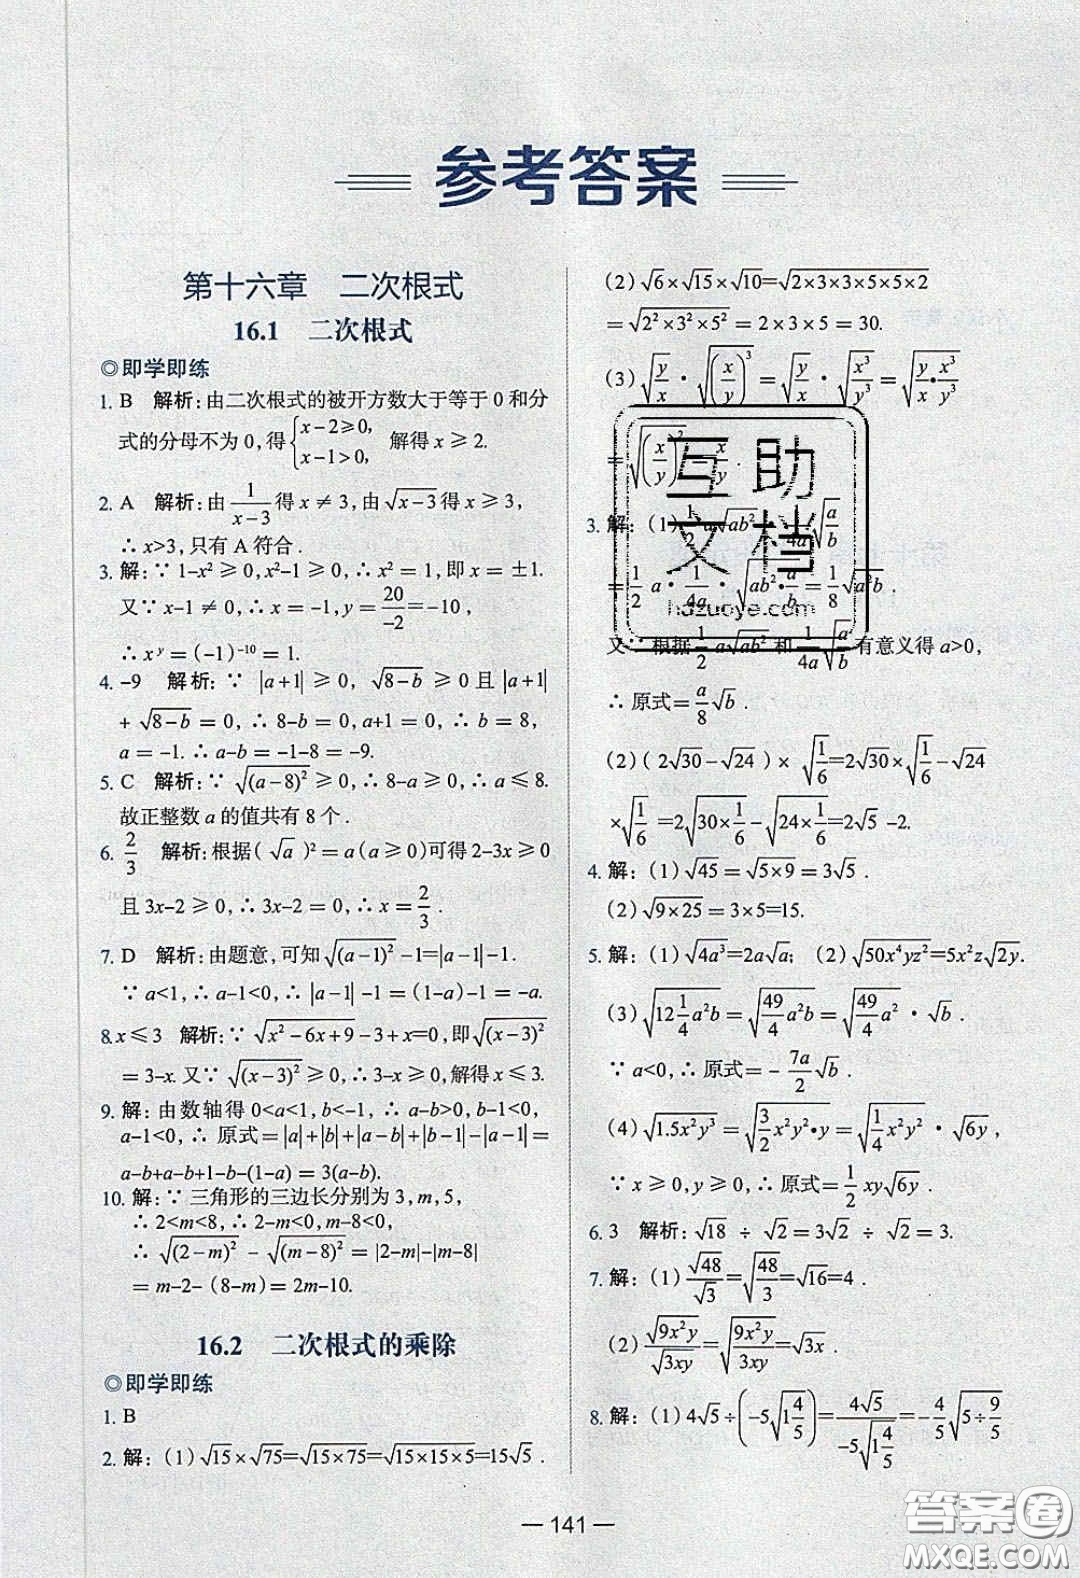 参考答案
第十六章　二次根式
16.1　二次根式
◎即学即练
1. B　解析:由二次根式的被开方数大于等于 0 和分
式的分母不为 0,得{x-2≥0, x-1>0, 解得 x ≥ 2.
2. A　解析:由 1/(x-3) 得 x ≠ 3,由 √(x-3) 得 x ≥ 3,
∴ x>3,只有 A 符合.
3. 解:∵ 1-x² ≥ 0,x²-1 ≥ 0,∴ x² = 1,即 x = ±1.
又∵ x-1 ≠ 0,∴ x = -1,y = 20/-2 = -10,
∴ x^y = (-1)^-10 = 1.
4. -9　解析:∵ |a+1| ≥ 0, √(8-b) ≥ 0 且 |a+1|
+ √(8-b) = 0,∴ 8-b = 0,a+1 = 0,∴ b = 8,
a = -1.∴ a-b = -1-8 = -9.
5. C　解析:∵ √((a-8)²) ≥ 0,∴ 8-a ≥ 0,∴ a ≤ 8.
故正整数 a 的值共有 8 个.
6. 2/3　解析:根据(√a)² = a(a ≥ 0)可得 2-3x ≥ 0
且 3x-2 ≥ 0,∴ 3x-2 = 0,∴ x = 2/3.
7. D　解析:由题意,可知 √((a-1)²) -1=|a-1|-1.
∵ a<1,∴ a-1<0,∴ |a-1| -1 = (1-a)-1 = -a.
8. x ≤ 3　解析:∵ √(x²-6x+9) -3+x=0,即 √((x-3)²)
= 3-x.又∵ √((x-3)²) ≥ 0,∴ 3-x ≥ 0,解得 x ≤ 3.
9. 解:由数轴得 0<a<1,b<-1, ∴ a-b>0,b-1<0,
a-1<0,∴ 原式=|a|+|b|+|a-b|+|b-1|-|a-1|=
a-b+a-b+1-b-(1-a) = 3(a-b).
10. 解:∵ 三角形的三边长分别为 3,m,5,
∴ 2<m<8,∴ 2-m<0,m-8<0,
∴ √((2-m)²) - √((m-8)²) = |2-m|-|m-8|
= m-2-(8-m) = 2m-10.
16.2　二次根式的乘除
◎即学即练
1. B
2. 解:(1)√15×√75=√(15×75)=√(15×15×5)=15√5.
(2) √6×√15×√10=√(2×3×3×5×5×2)
= √(2²×3²×5²) = 2×3×5 = 30.
(3) √(y/x) · √((x/y)³) = √(y/x) · √(x³/y³) = √(y/x·x³/y³)
= √((x/y)²) = x/y.
3. 解:(1) 1/2 a√(ab²) · 1/4a √(a/b)
= 1/2 a· 1/4a · √(ab²·a/b) = 1/8 √(a²b).
又∵ 根据 1/2 a√(ab²) 和 1/4a √(a/b) 有意义得 a>0,
∴ 原式= a/8 √b.
(2) (2√30-√24)× √(1/6)=2√30×√(1/6)-√24
×√(1/6)=2√(30×1/6)-√(24×1/6)=2√5 -2.
4. 解:(1)√45 = √(5×9) = 3√5.
(2) √(9×25) = 3×5=15.
5. 解:(1) √(4a³)=2a√a; (2) √(50x⁴yz²)=5x²z√(2y).
(3) √(12 1/4 a²b) = √(49/4 a²b) = √(49/4 a²) · √b.
∵ a<0,∴ 原式= - 7a/2 √b.
(4) √(1.5x²y³) = √(3/2 x²y²·y) = √(1/4 x²y²) · √(6y),
∵ x ≥ 0,y ≥ 0,∴ 原式= 1/2 xy√(6y).
6. 3　解析:√18 ÷ √2 = 3√2 ÷ √2 = 3.
7. 解:(1) √48/√3 = √(48/3) = √16 = 4.
(2) √(9x²y)/√(3xy) = √(9x²y/3xy) = √(3x).
8. 解:(1) 4√5÷(-5√(1 4/5)) = 4√5/(-5√(1 4/5)) = -4/5 √(5÷9/5)
— 141 —
互助
文档
hdzuoye.com
答案圈
MXQE.COM